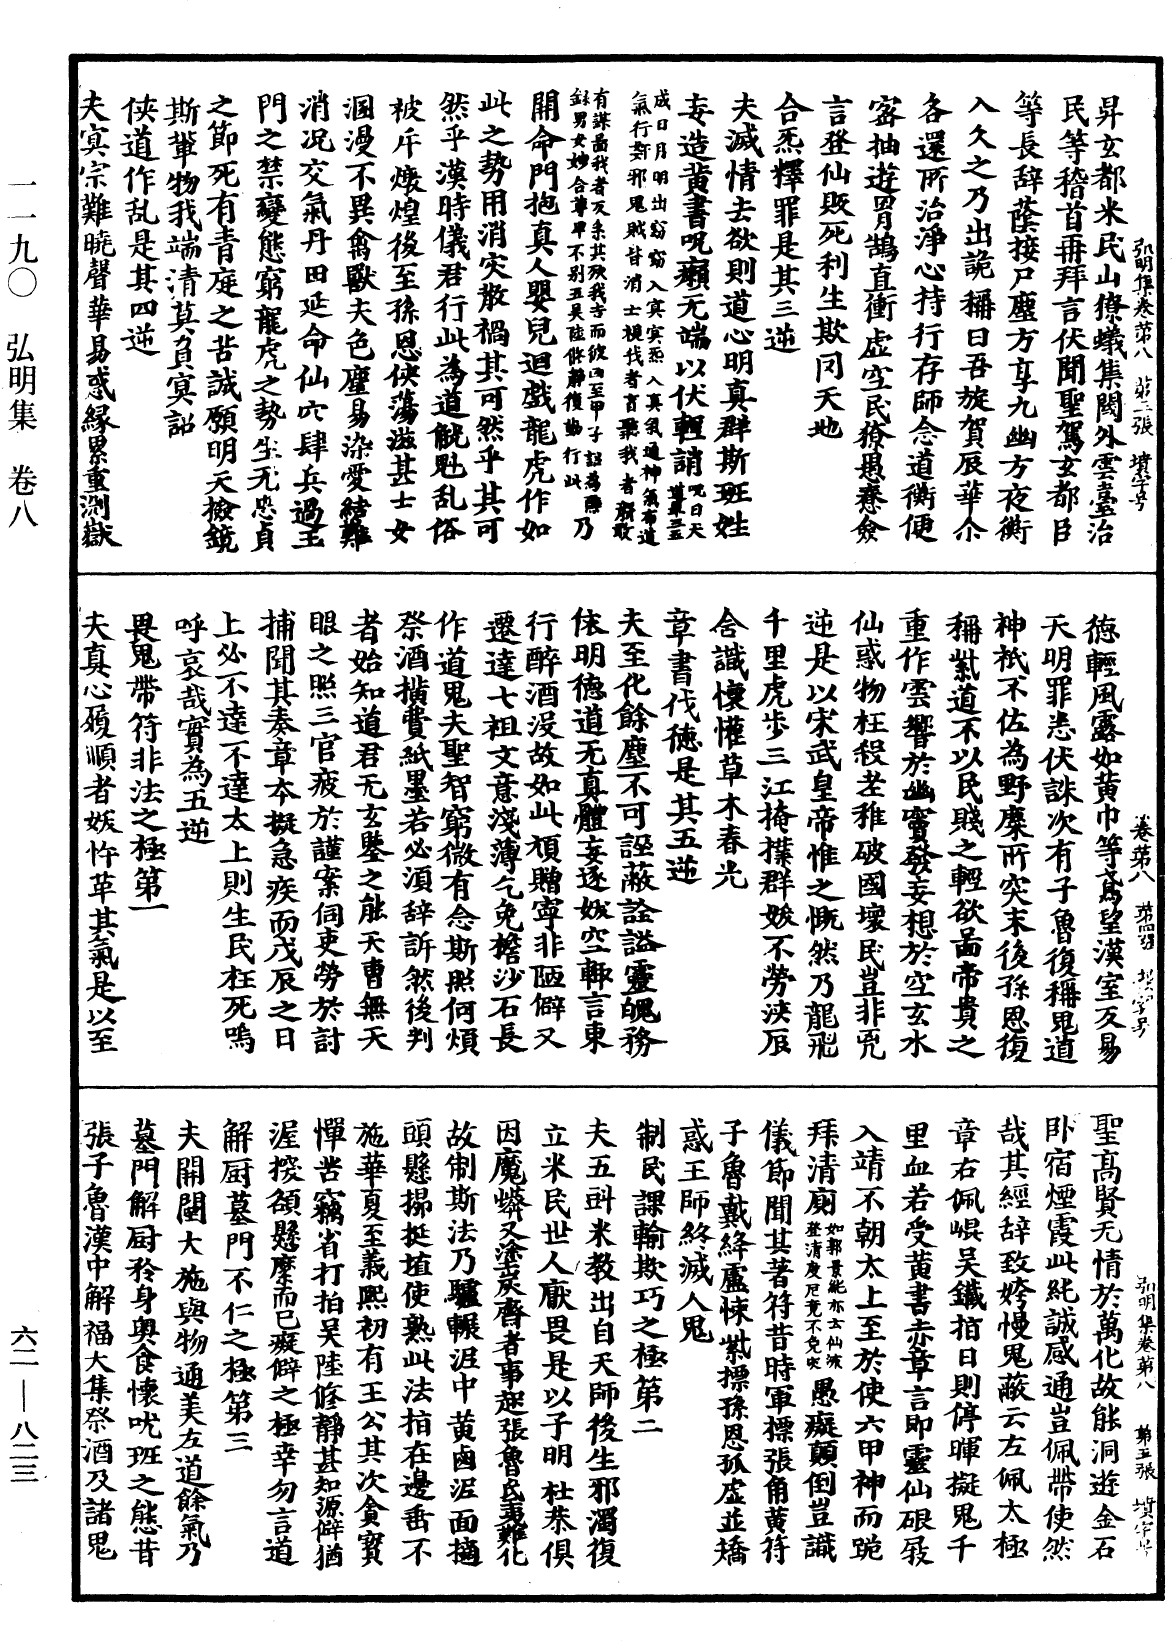 昇玄都米民山獠蟻集閡外雲臺治
民等稽首再拜言伏聞聖駕玄都臣
等長辞蔭接尸塵方享九幽方夜衡
入久之乃出詭稱曰吾旋賀辰華尒
各還所治淨心持行存師念道衡便
密抽遊罥鵠直衝虚空民獠愚惷僉
言登仙既死利生欺罔天地
合炁釋罪是其三逆
夫滅情去欲則道心明真群斯班姓
妄造黃書呪癩无端以伏輕誚
夫真宗難曉聲華易惑緣累重測嶽
開命門抱真人嬰兒迴戲龍虎作如
此之勢用消灾散禍其可然乎其可
然乎漢時儀君行此為道魀魁乱俗
被斥燉煌後至孫恩俠蕩滋甚士女
溷漫不異禽獸夫色塵易染愛結難
消况交氣丹田延命仙穴肆兵過玉
門之禁變態窮龍虎之勢生无忠貞
之節死有青庭之苦誠願明天撿鏡
斯輩物我端清莫負冥詔
俠道作乱是其四逆
德輕風露如黃巾等鳶望漢室反易
天明罪恚伏誅次有子魯復稱鬼道
神祇不佐為野麋所突末後孫恩復
稱紫道不以民賤之輕欲啚帝貴之
重作雲響於幽寞發妄想於空玄水
仙惑物枉殺老稚破國壞民豈非㐫
逆是以宋武皇帝惟之慨然乃龍飛
千里虎步三江掩撲群妖不勞浹辰
含識懷懽草木春光
章書伐德是其五逆
夫至化餘塵不可誣蔽詮謚靈魄務
依明德道无真體妄逐妖空輙言東
行醉酒没故如此頑贈寧非陋僻又
遷達七祖文意淺薄乞免擔沙石長
作道鬼夫聖智窮微有念斯照何煩
祭酒撗費紙墨若必須辞訴然後判
者始知道君无玄鑒之能天曹無天
眼之照三官疲於謹案伺吏勞於討
捕聞其奏章夲擬急疾而戊辰之日
上必不達不達太上則生民枉死嗚
呼哀哉實為五逆
畏鬼帶符非法之極第一
夫真心履順者妖忤革其氣是以至
聖高賢无情於萬化故能洞遊金石
卧宿煙霞此純誠感通豈佩帶使然
哉其經辞致姱慢鬼蔽云左佩太極
章右佩崐吴鐵指日則停暉擬鬼千
里血若受黃書赤章言即靈仙硍㞕
入靖不朝太上至於使六甲神而跪
拜清廁如郭景純亦云仙流登清度厄竟不免灾愚癡顛倒豈識
儀節聞其著符昔時軍標張角黃符
子魯戴絳盧悚紫摽孫恩孤虚並矯
惑王師終滅人鬼
制民課輸欺巧之極第二
夫五㪷米教出自天師後生邪濁復
立米民世人厭畏是以子明杜恭俱
因魔蟒又塗炭齋者事起張魯氐夷難化
故制斯法乃驢輾泥中黃鹵泥面擿
頭懸搦挺埴使熟此法指在邊垂不
施華夏至義熙初有王公其次貪寶
憚苦竊省打拍吴陸修靜甚知源僻猶
泥揬額懸縻而已癡僻之極幸勿言道
解厨墓門不仁之極第三
夫開闔大施與物通美左道餘氣乃
墓門解厨矜身與食懷吠班之態昔
張子魯漢中解福大集祭酒及諸鬼
弘明集卷第八　第三張　墳字号
卷第八　第四張　墳字号
弘明集卷第八　第五張　墳字号
一一九〇　弘明集　卷八
六二—八二三